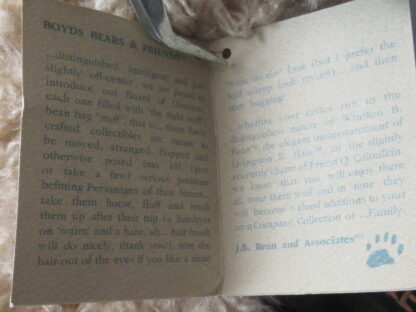 BOYDS BEARS & FRIENDS™
...distinguished, intelligent and just
slightly "off-center", we are proud to
introduce our Board of Directors,
each one filled with "the right stuff",
bean bag "stuff", that is... these finely
crafted collectibles are meant to
be moved, arranged, flopped and
otherwise posed into 101 (give
or take a few) serious positions
befitting Personages of their Stature...
take them home, fluff and brush
them up after their trip (a hairdryer
on 'warm' and a hare, uh... hair brush
will do nicely, thank you), trim the
hair out of the eyes if you like a more
wide-awake look (but I prefer the
half asleep look myself)... and then
start hugging!
...Whether your tastes run to the
distinguished nature of Winston B.
Bean™, the elegant understatement of
Livingston R. Hare™, or the slightly
eccentric charm of Ernest Q. Grimilkin,
we know that you will enjoy them
all, treat them well and in time they
will become valued additions to your
own Company, Collection or ...Family.
J.B. Bean and Associates™